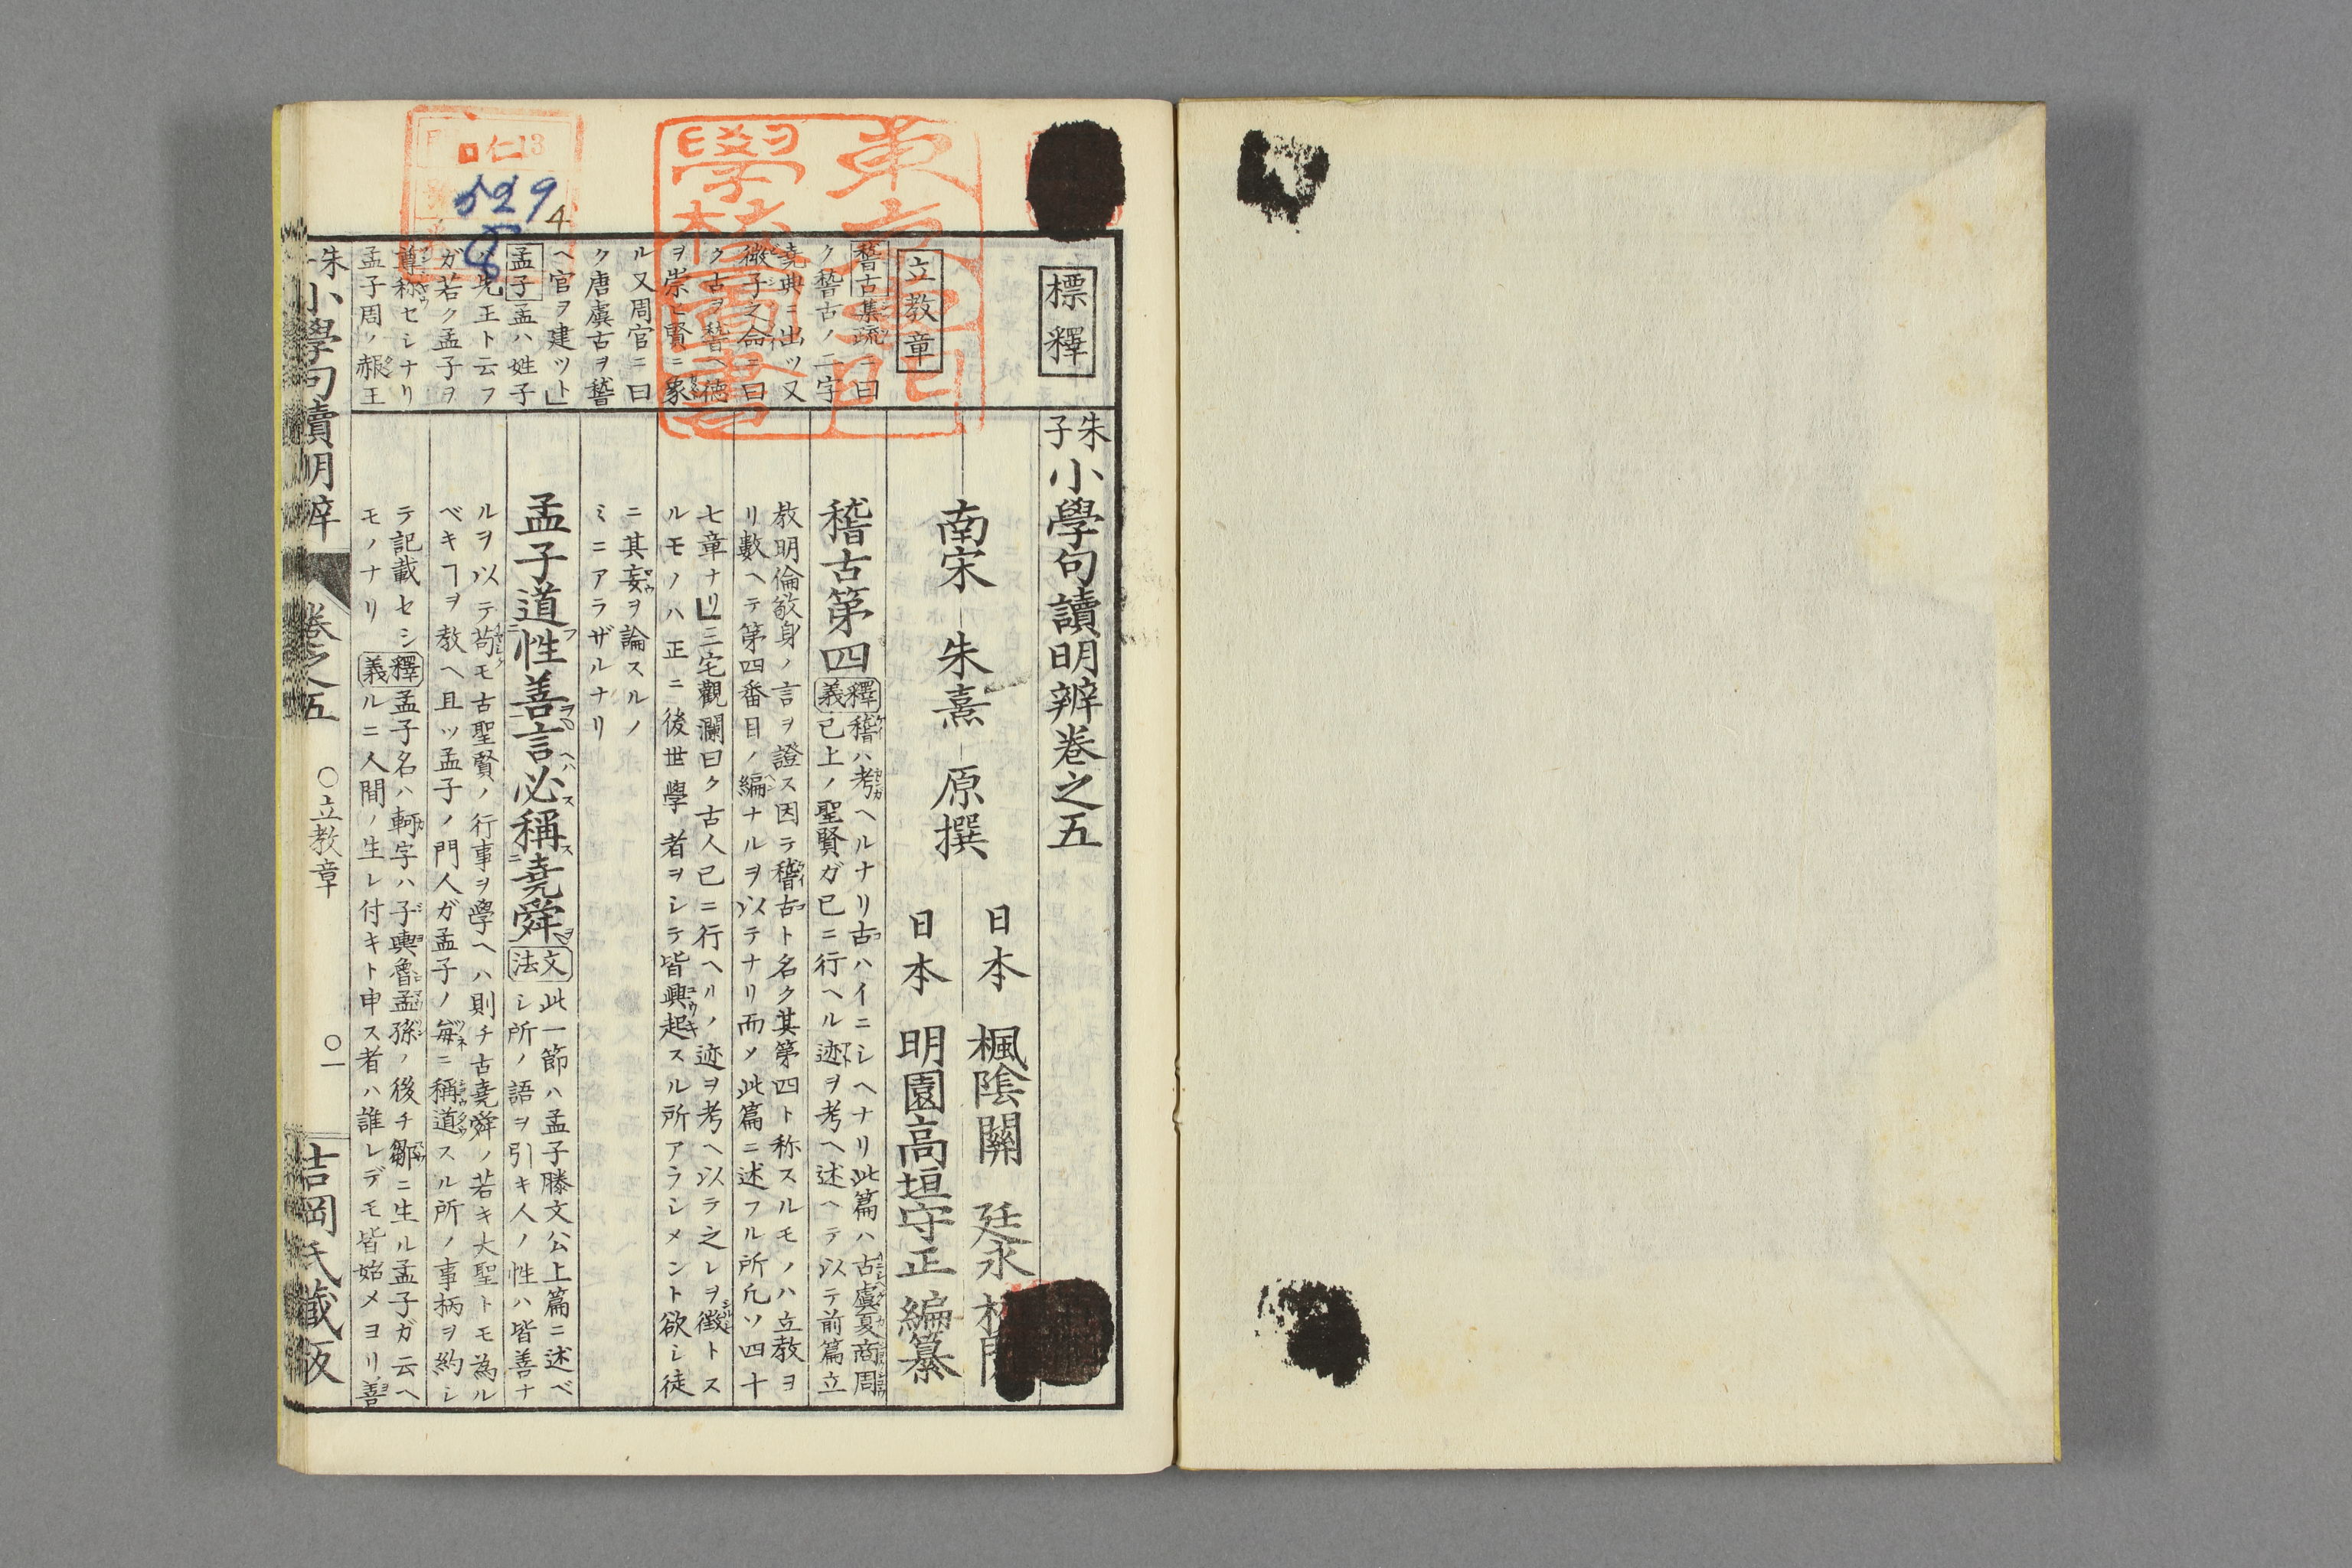 標釋
朱子小學句讀明辨卷之五
南宋 朱熹 原撰
日本 楓陰關 廷永
日本 明園高垣守正 編纂
立教章
稽古集疏ニ曰
ク稽古ノ二字
堯典ニ出ツ又
微子之命ニ曰
ク古ヲ稽ヘ德
ヲ崇ヒ賢ニ象
ル又周官ニ曰
ク唐虞古ヲ稽
ヘ官ヲ建ツト
孟子孟ハ姓子
先王ト云フ
ガ若ク孟子ヲ
尊称セシナリ
孟子周ノ赧王
稽古第四 釋義 稽ハ考ヘルナリ古ハイニシヘナリ此篇ハ古虞夏商周
已上ノ聖賢ガ已ニ行ヘル迹ヲ考ヘ述ヘテ以テ前篇立
教明倫敬身ノ言ヲ證ス因テ稽古ト名ク其第四ト称スルモノハ立教ヨ
リ數ヘテ第四番目ノ編ナルヲ以テナリ而メ此篇ニ述フル所凡ソ四十
七章ナリ」三宅觀瀾曰ク古人已ニ行ヘルノ迹ヲ考ヘ以テ之レヲ徴トス
ルモノハ正ニ後世學者ヲシテ皆興起スル所アラシメント欲シ徒
ニ其妄ヲ論スルノ
ミニアラザルナリ
孟子道性善言必稱堯舜 文法 此一節ハ孟子滕文公上篇ニ述ベ
シ所ノ語ヲ引キ人ノ性ハ皆善ナ
ルヲ以テ苟モ古聖賢ノ行事ヲ學ヘハ則チ古堯舜ノ若キ大聖トモ為ル
ベキヿヲ教ヘ且ツ孟子ノ門人ガ孟子ノ毎ニ稱道スル所ノ事柄ヲ約シ
テ記載セシ 釋義 孟子名ハ軻字ハ子輿魯孟孫ノ後チ鄒ニ生ル孟子ガ云ヘ
モノナリ ルニ人間ノ生レ付キト申ス者ハ誰レデモ皆始メヨリ善
朱子小學句讀明辨 卷之五 〇立教章 〇一 吉岡氏藏版
東京專門學校圖書
仁13
529
4
8